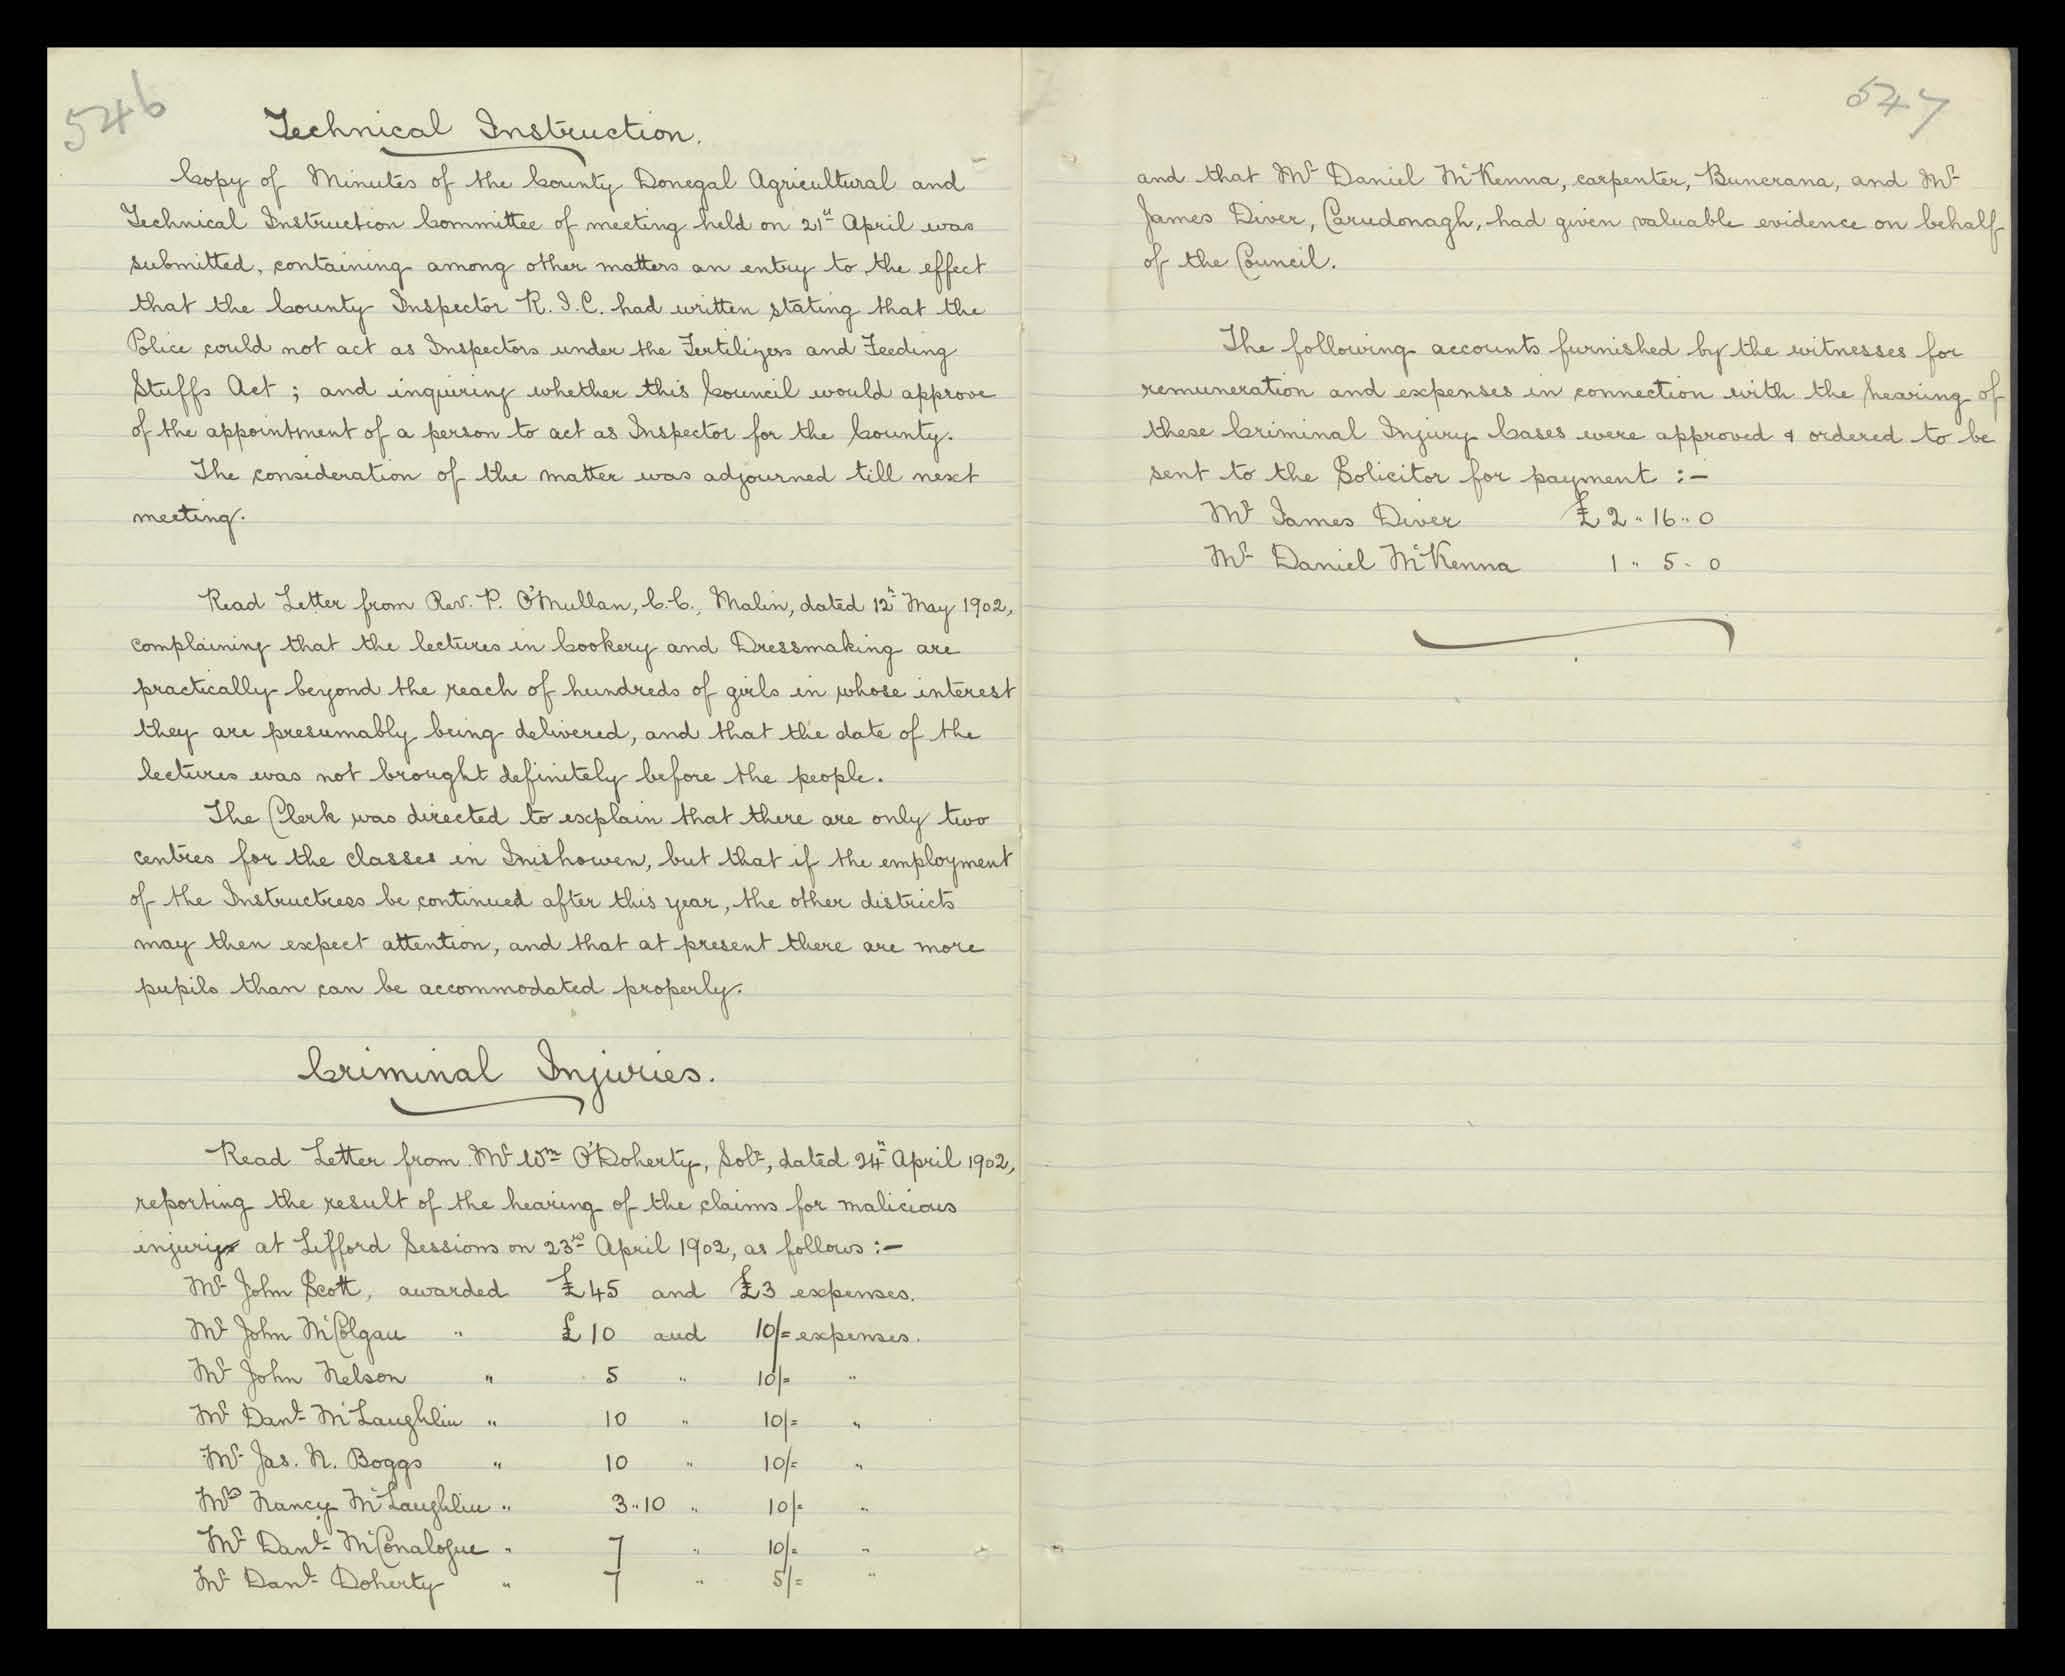 546
Technical Instruction.
Copy of Minutes of the County Donegal Agricultural and
Technical Instruction Committee of meeting held on 21st April was
submitted, containing among other matters an entry to the effect
that the County Inspector R. I. C. had written stating that the
Police could not act as Inspectors under the Fertilizers and Feeding
Stuffs Act ; and inquiring whether this Council would approve
of the appointment of a person to act as Inspector for the County.
The consideration of the matter was adjourned till next
meeting.
Read Letter from Rev. P. O'Mullan, C.C., Malin, dated 12th May 1902,
complaining that the lectures in Cookery and Dressmaking are
practically beyond the reach of hundreds of girls in whose interest
they are presumably being delivered, and that the date of the
lectures was not brought definitely before the people.
The Clerk was directed to explain that there are only two
centres for the classes in Inishowen, but that if the employment
of the Instructress be continued after this year, the other districts
may then expect attention, and that at present there are more
pupils than can be accommodated properly.
Criminal Injuries.
Read Letter from Mr Wm O'Doherty, Solr, dated 24th April 1902,
reporting the result of the hearing of the claims for malicious
injury at Lifford Sessions on 23rd April 1902, as follows :-
Mr John Scott, awarded £45 and £3 expenses.
Mr John McColgan " £10 and 10/= expenses.
Mr John Nelson " 5 " 10/= "
Mr Danl McLaughlin " 10 " 10/= "
Mr Jas. N. Boggs " 10 " 10/= "
Mrs Nancy McLaughlin " 3 " 10 " 10/= "
Mr Danl McConalogue " 7 " 10/= "
Mr Danl Doherty " 7 " 5/= "
547
and that Mr Daniel McKenna, carpenter, Buncrana, and Mr
James Diver, Carndonagh, had given valuable evidence on behalf
of the Council.
The following accounts furnished by the witnesses for
remuneration and expenses in connection with the hearing of
these Criminal Injury Cases were approved & ordered to be
sent to the Solicitor for payment :-
Mr James Diver £2 " 16 " 0
Mr Daniel McKenna 1 " 5 " 0